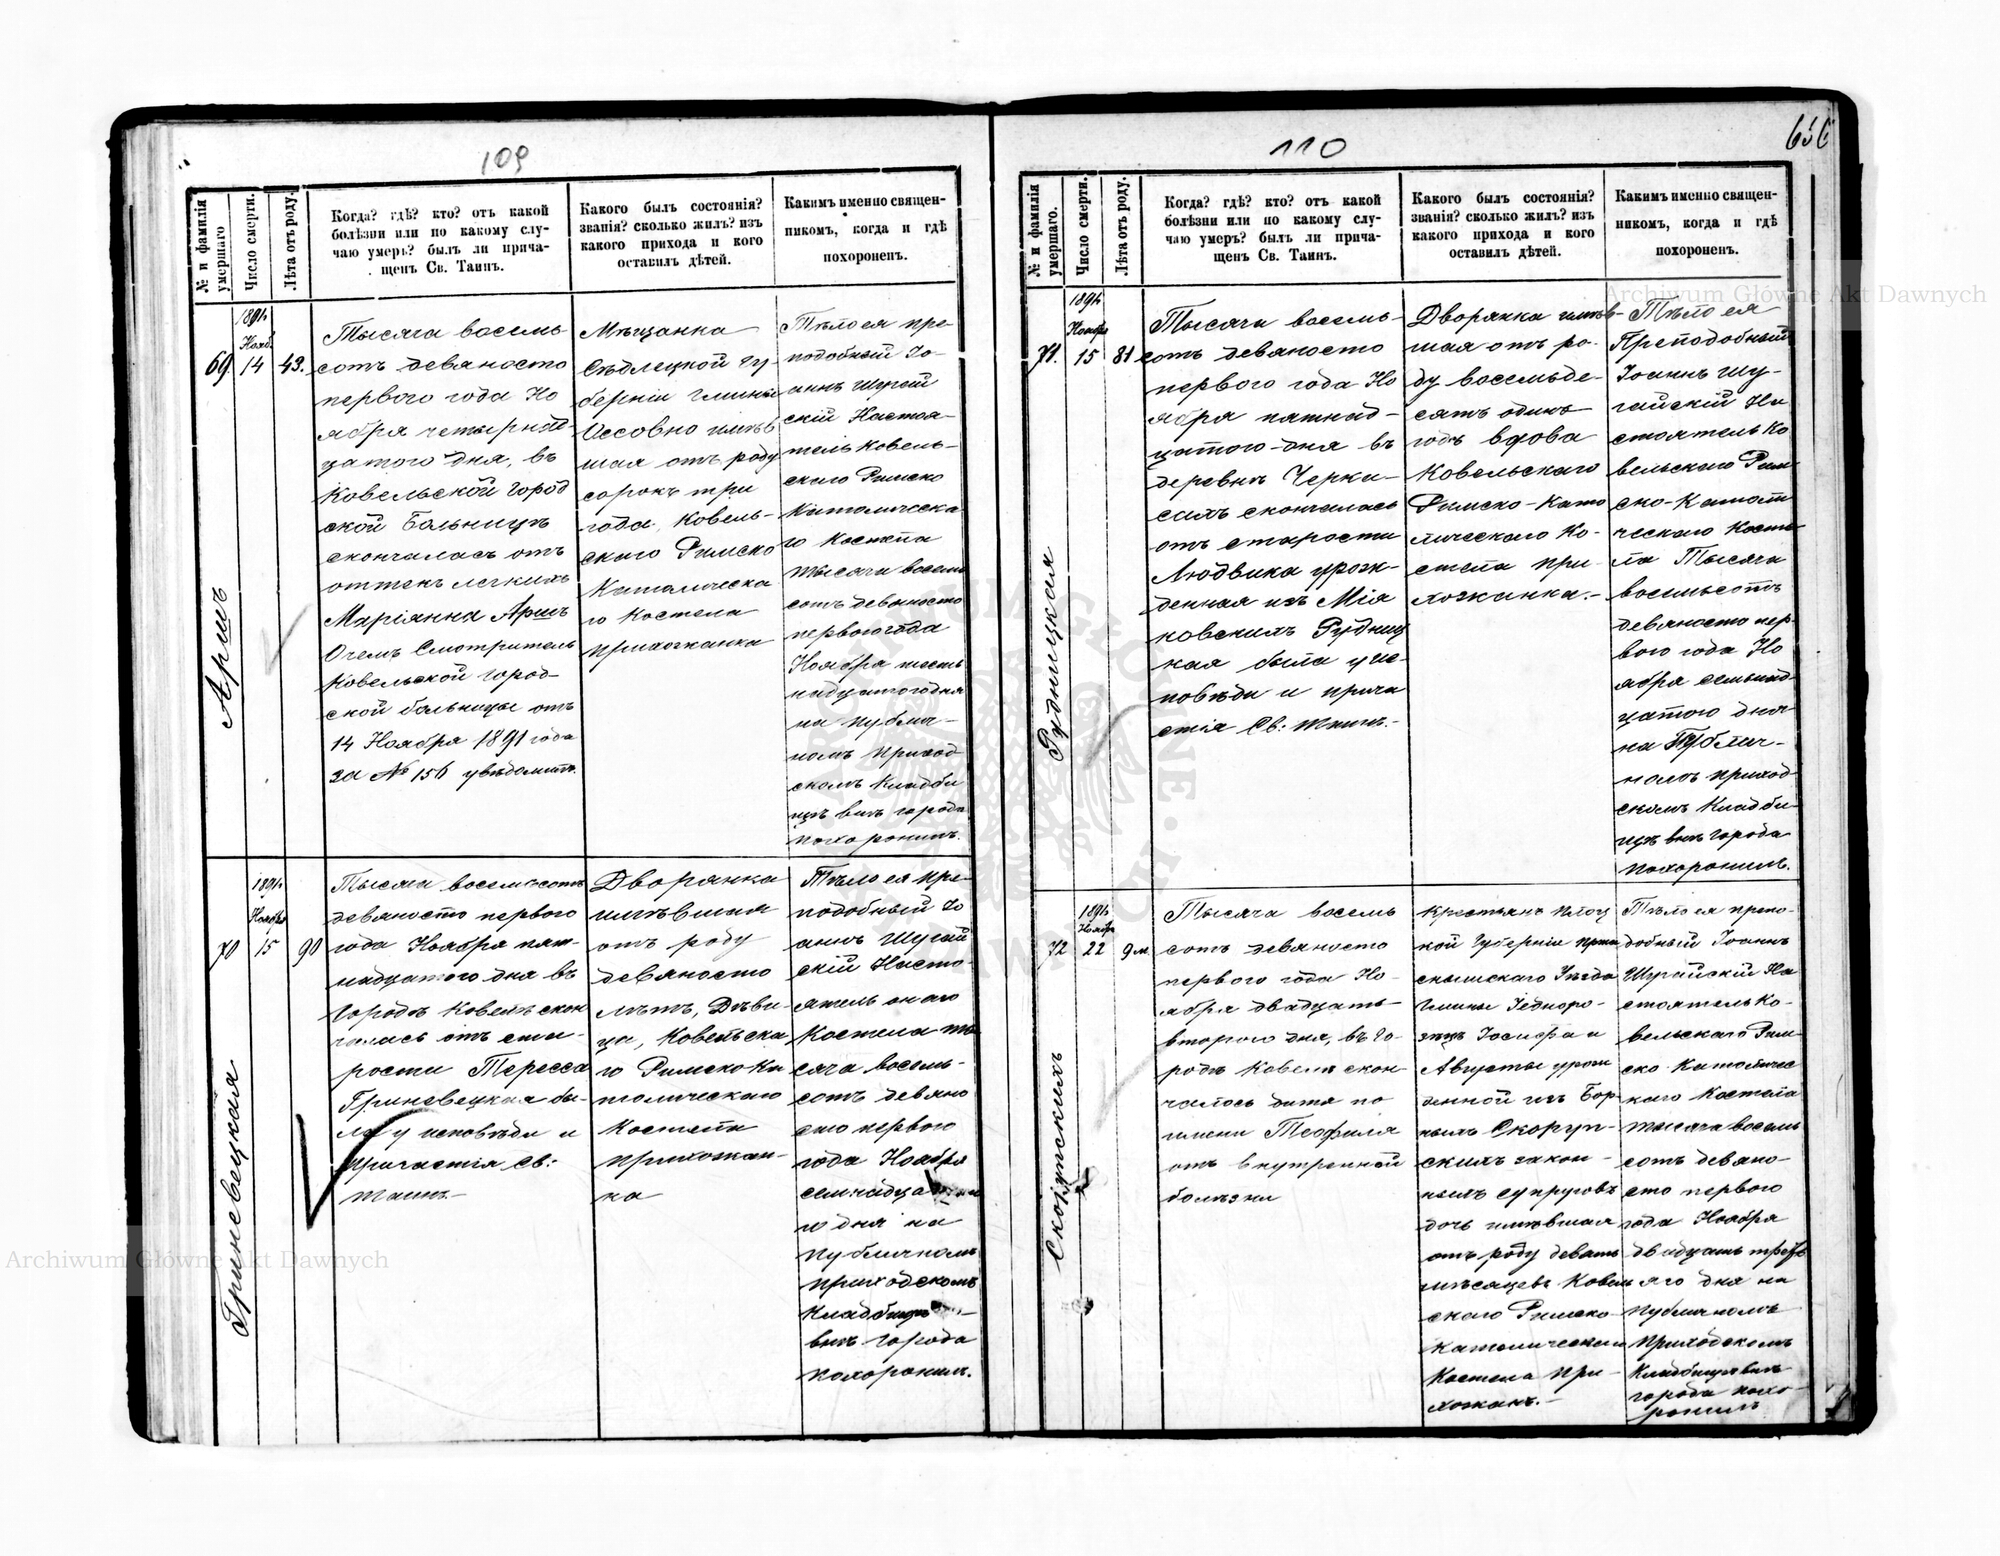 109
№ и фамилія умершаго.
Число смерти.
Лѣта отъ роду.
Когда? гдѣ? кто? отъ какой
болѣзни или по какому слу-
чаю умеръ? былъ ли прича-
щенъ Св. Таинъ.
Какого былъ состоянія?
званія? сколько жилъ? изъ
какого прихода и кого
оставилъ дѣтей.
Какимъ именно священ-
никомъ, когда и гдѣ
похороненъ.
69.
Аришъ
1891
Нояб.
14
43.
Тысяча восемь
сотъ девяносто
перваго года Но
ября четырнад
цатого дня, въ
Ковельской город
ской Больницѣ
скончалась отъ
оттекъ легкихъ
Маріянна Аришъ
о чемъ Смотритель
Ковельской город-
ской больницы отъ
14 Ноября 1891 года
за № 156 увѣдомилъ.
Мѣщанка
Сѣдлецкой гу-
берніи гмины
Оссовно имѣв
шая отъ роду
сорокъ три
года, Ковель-
скаго Римско
Католическа
го Костела
прихожанка
Тѣло ея пре-
подобный Іо-
аннъ Шугай
скій Настоя-
тель Ковель-
скаго Римско
Католическа
го Костела
тысяча восемь
сотъ девяносто
перваго года
Ноября шесть
надцатого дня
на публич-
номъ приход
скомъ кладби
щѣ внѣ города
похоронилъ.
70
Гриневецкая
1891
Ноября
15
90
Тысяча восемьсотъ
девяносто перваго
года Ноября пят-
надцатого дня въ
городѣ Ковелѣ скон
чалась отъ ста-
рости Тересса
Гриневецкая бы-
ла у исповѣди и
причастія Св:
Таинъ
Дворянка
имѣвшая
отъ роду
девяносто
лѣтъ, Дѣви-
ца, Ковельска
го Римско Ка
толическаго
Костела
прихожан-
ка
Тѣло ея пре-
подобный Іо
аннъ Шугай
скій Насто-
ятель онаго
Костела ты
сяча восемь-
сотъ девяно
сто перваго
года Ноября
го дня на
публичномъ
приходскомъ
кладбищѣ
внѣ города
похоронилъ.
110
№ и фамилія умершаго.
Число смерти.
Лѣта отъ роду.
Когда? гдѣ? кто? отъ какой
болѣзни или по какому слу-
чаю умеръ? былъ ли прича-
щенъ Св. Таинъ.
Какого былъ состоянія?
званія? сколько жилъ? изъ
какого прихода и кого
оставилъ дѣтей.
Какимъ именно священ-
никомъ, когда и гдѣ
похороненъ.
71.
Рудницкая
1891
Ноября
15
81
Тысяча восемь-
сотъ девяносто
перваго года Но
ября пятнад-
цатого дня въ
деревнѣ Черка-
сахъ скончалась
отъ старости
Людвика урож-
денная изъ Мія
ковскихъ Рудниц
кая была у ис-
повѣди и прича
стія Св: Таинъ.
Дворянка имѣв-
шая отъ ро-
ду восемьде-
сятъ одинъ
годъ вдова
Ковельскаго
Римско-Като
лическаго Ко-
стела при-
хожанка.
Тѣло ея
Преподобный
Іоаннъ Шу-
гайскій На
стоятель Ко
вельскаго Рим
ско-Католи
ческаго Косте
ла Тысяча
восемьсотъ
девяносто пер-
ваго года Но
ября семнад
цатого дня
на Публич-
номъ приход
скомъ кладби-
щѣ внѣ города
похоронилъ.
72
Скорупскихъ
1891
Ноября
22
9 м.
Тысяча восемь
сотъ девяносто
перваго года Но-
ября двадцать-
второго дня, въ го-
родѣ Ковелѣ скон
чалось дитя по
имени Теофиля
отъ внутренной
болѣзни
Крестьянъ Плоц
кой Губерніи Прас
нышскаго Уѣзда
гмины Іедноро-
зецъ Іосифа и
Августы урож
денной изъ Бор
ныхъ Скоруп-
скихъ закон-
ныхъ супруговъ
дочь имѣвшая
отъ роду девять
мѣсяцевъ Ковель
скаго Римско-
Католическаго
Костела при-
хожанъ.
Тѣло ея препо-
добный Іоаннъ
Шугайскій На
стоятель Ко-
вельскаго Рим-
ско-Католичес
каго Костела
тысяча восемь
сотъ девяно-
сто перваго
года Ноября
двадцать треть
яго дня на
публичномъ
приходскомъ
кладбищѣ внѣ
города похо-
ронилъ
Archiwum Główne Akt Dawnych
Archiwum Główne Akt Dawnych